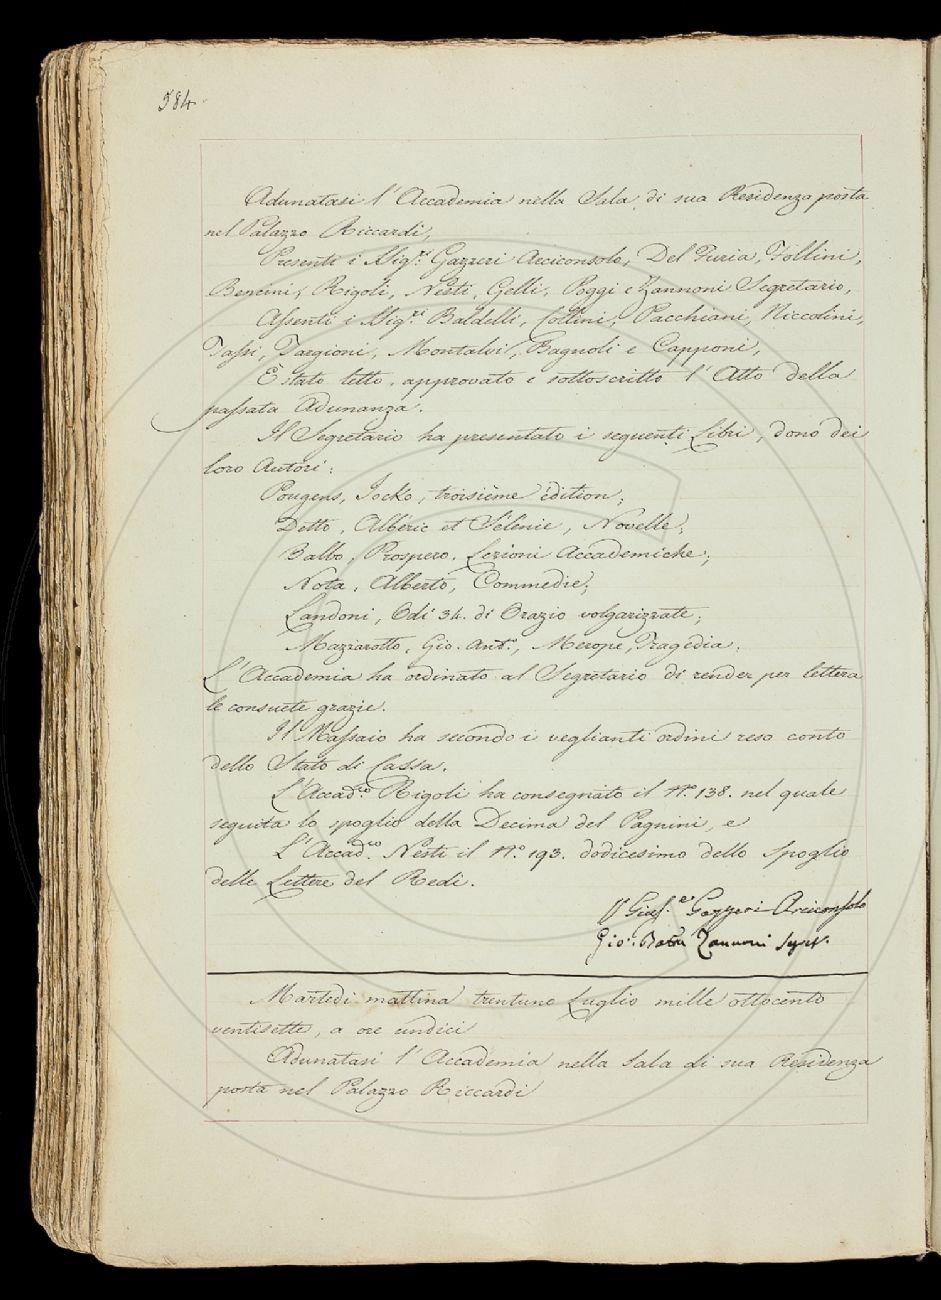 584
Adunatasi l'Accademia nella Sala di sua Residenza posta
nel Palazzo Riccardi,
Presenti i Sig.ri Gazzeri Arciconsolo, Del Furia, Follini,
Bencini, Rigoli, Nesti, Gelli, Poggi e Zannoni Segretario,
Assenti i Sig.ri Baldelli, Collini, Pacchiani, Niccolini,
Tassi, Targioni, Montalvi, Bagnoli e Capponi,
È stato letto, approvato e sottoscritto l'Atto della
passata Adunanza.
Il Segretario ha presentato i seguenti Libri, dono dei
loro Autori:
Pougens, Jocko, troisième édition;
Detto, Albéric et Sélénie, Novelle;
Balbo, Prospero, Lezioni Accademiche;
Nota, Alberto, Commedie;
Landoni, Odi 34. di Orazio volgarizzate;
Maziarotto, Gio. Ant.o, Merope, Tragedia.
L'Accademia ha ordinato al Segretario di render per lettera
le consuete grazie.
Il Massaio ha secondo i veglianti ordini reso conto
dello Stato di Cassa.
L'Accad.co Rigoli ha consegnato il N.o 138. nel quale
seguita lo spoglio della Decima del Pagnini, e
L'Accad.co Nesti il N.o 193. dodicesimo dello Spoglio
delle Lettere del Redi.
Gius.e Gazzeri Arciconsolo
Gio. Batta Zannoni Segret.
Martedì mattina trentuno Luglio mille ottocento
ventisette, a ore undici
Adunatasi l'Accademia nella Sala di sua Residenza
posta nel Palazzo Riccardi